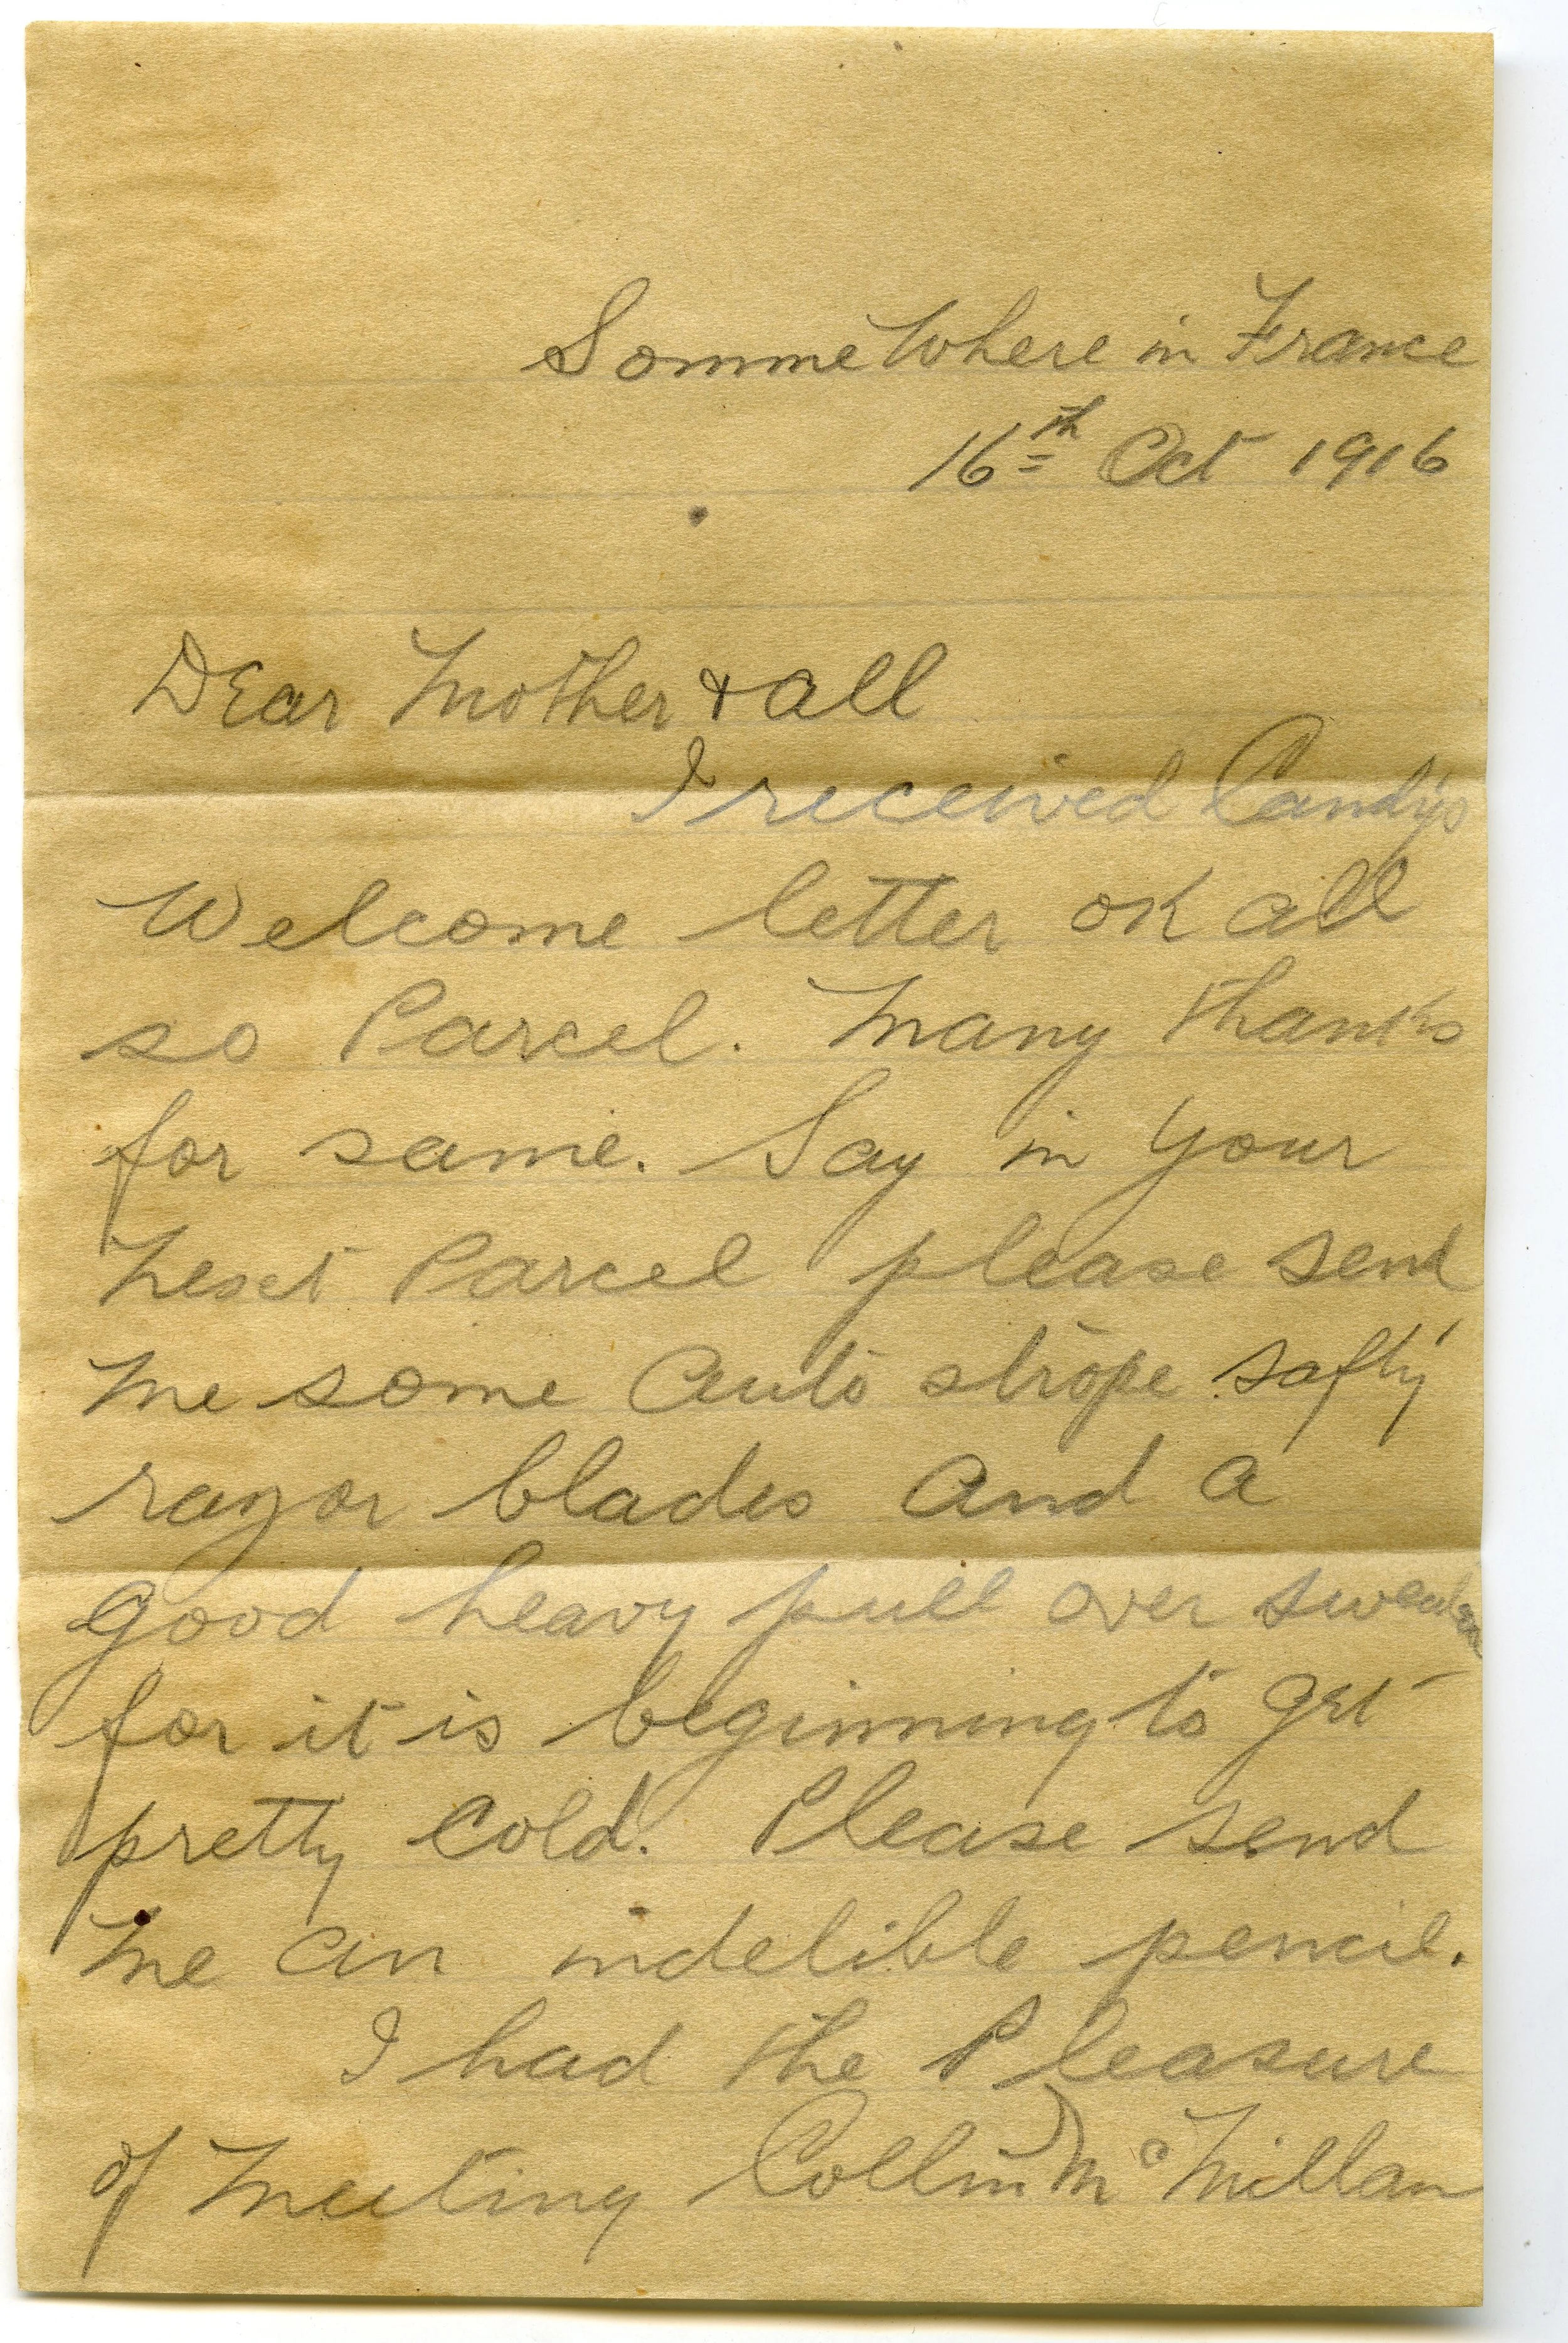 Somme Where in France
16th Oct 1916
Dear Mother & all
I received Candy's
Welcome letter OK all
so Parcel. Many thanks
for same. Say in your
next Parcel please send
me some Auto strope safty
razor blades and a
good heavy pull over sweater
for it is beginning to get
pretty cold. Please send
me an indelible pencil.
I had the Pleasure
of meeting Collin Mc Millan